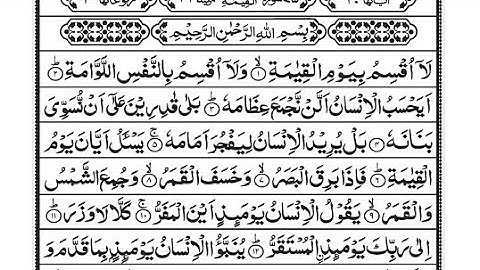 بِسْمِ اللهِ الرَّحْمٰنِ الرَّحِيْمِ
لَاۤ اُقْسِمُ بِيَوْمِ الْقِيٰمَةِ ۙ۱ وَلَاۤ اُقْسِمُ بِالنَّفْسِ اللَّوَّامَةِ ؕ۲
اَيَحْسَبُ الْاِنْسَانُ اَلَّنْ نَّجْمَعَ عِظَامَهٗ ؕ۳ بَلٰى قٰدِرِيْنَ عَلٰۤى اَنْ نُّسَوِّىَ
بَنَانَهٗ ۴ بَلْ يُرِيْدُ الْاِنْسَانُ لِيَفْجُرَ اَمَامَهٗ ۚ۵ يَسْـَٔلُ اَيَّانَ يَوْمُ
الْقِيٰمَةِ ؕ۶ فَاِذَا بَرِقَ الْبَصَرُ ۙ۷ وَخَسَفَ الْقَمَرُ ۙ۸ وَجُمِعَ الشَّمْسُ
وَالْقَمَرُ ۙ۹ يَقُوْلُ الْاِنْسَانُ يَوْمَئِذٍ اَيْنَ الْمَفَرُّ ۚ۱۰ كَلَّا لَا وَزَرَ ؕ۱۱
اِلٰى رَبِّكَ يَوْمَئِذِ ۨالْمُسْتَقَرُّ ؕ۱۲ يُنَبَّؤُا الْاِنْسَانُ يَوْمَئِذٍۭ بِمَا قَدَّمَ وَ